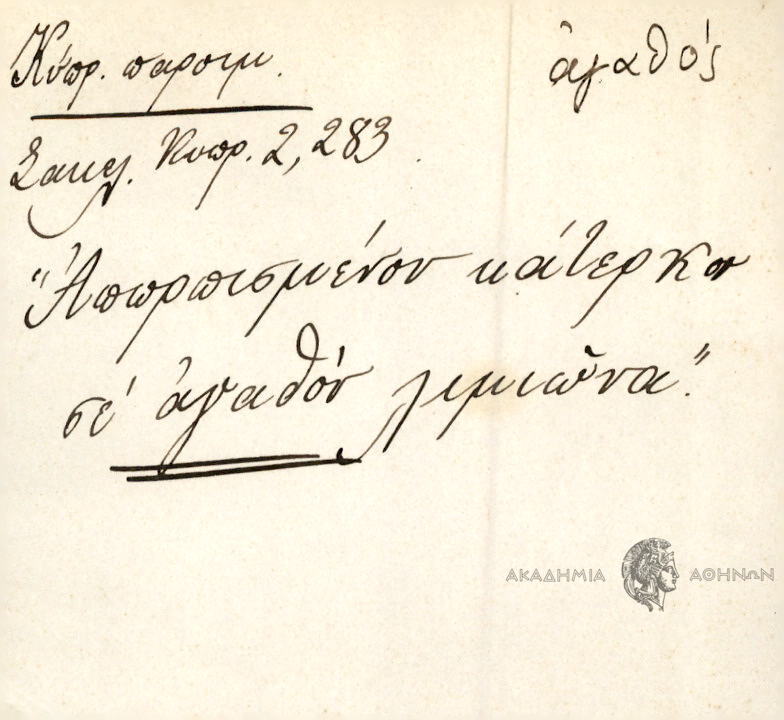 Κύπρ. παροιμ. ἀγαθός
Σακελ. Κυπρ. 2, 283
"Ἀπωρπισμένον κάτερκον
σὲ ἀγαθὸν λιμιῶνα".
ΑΚΑΔΗΜΙΑ ΑΘΗΝΩΝ